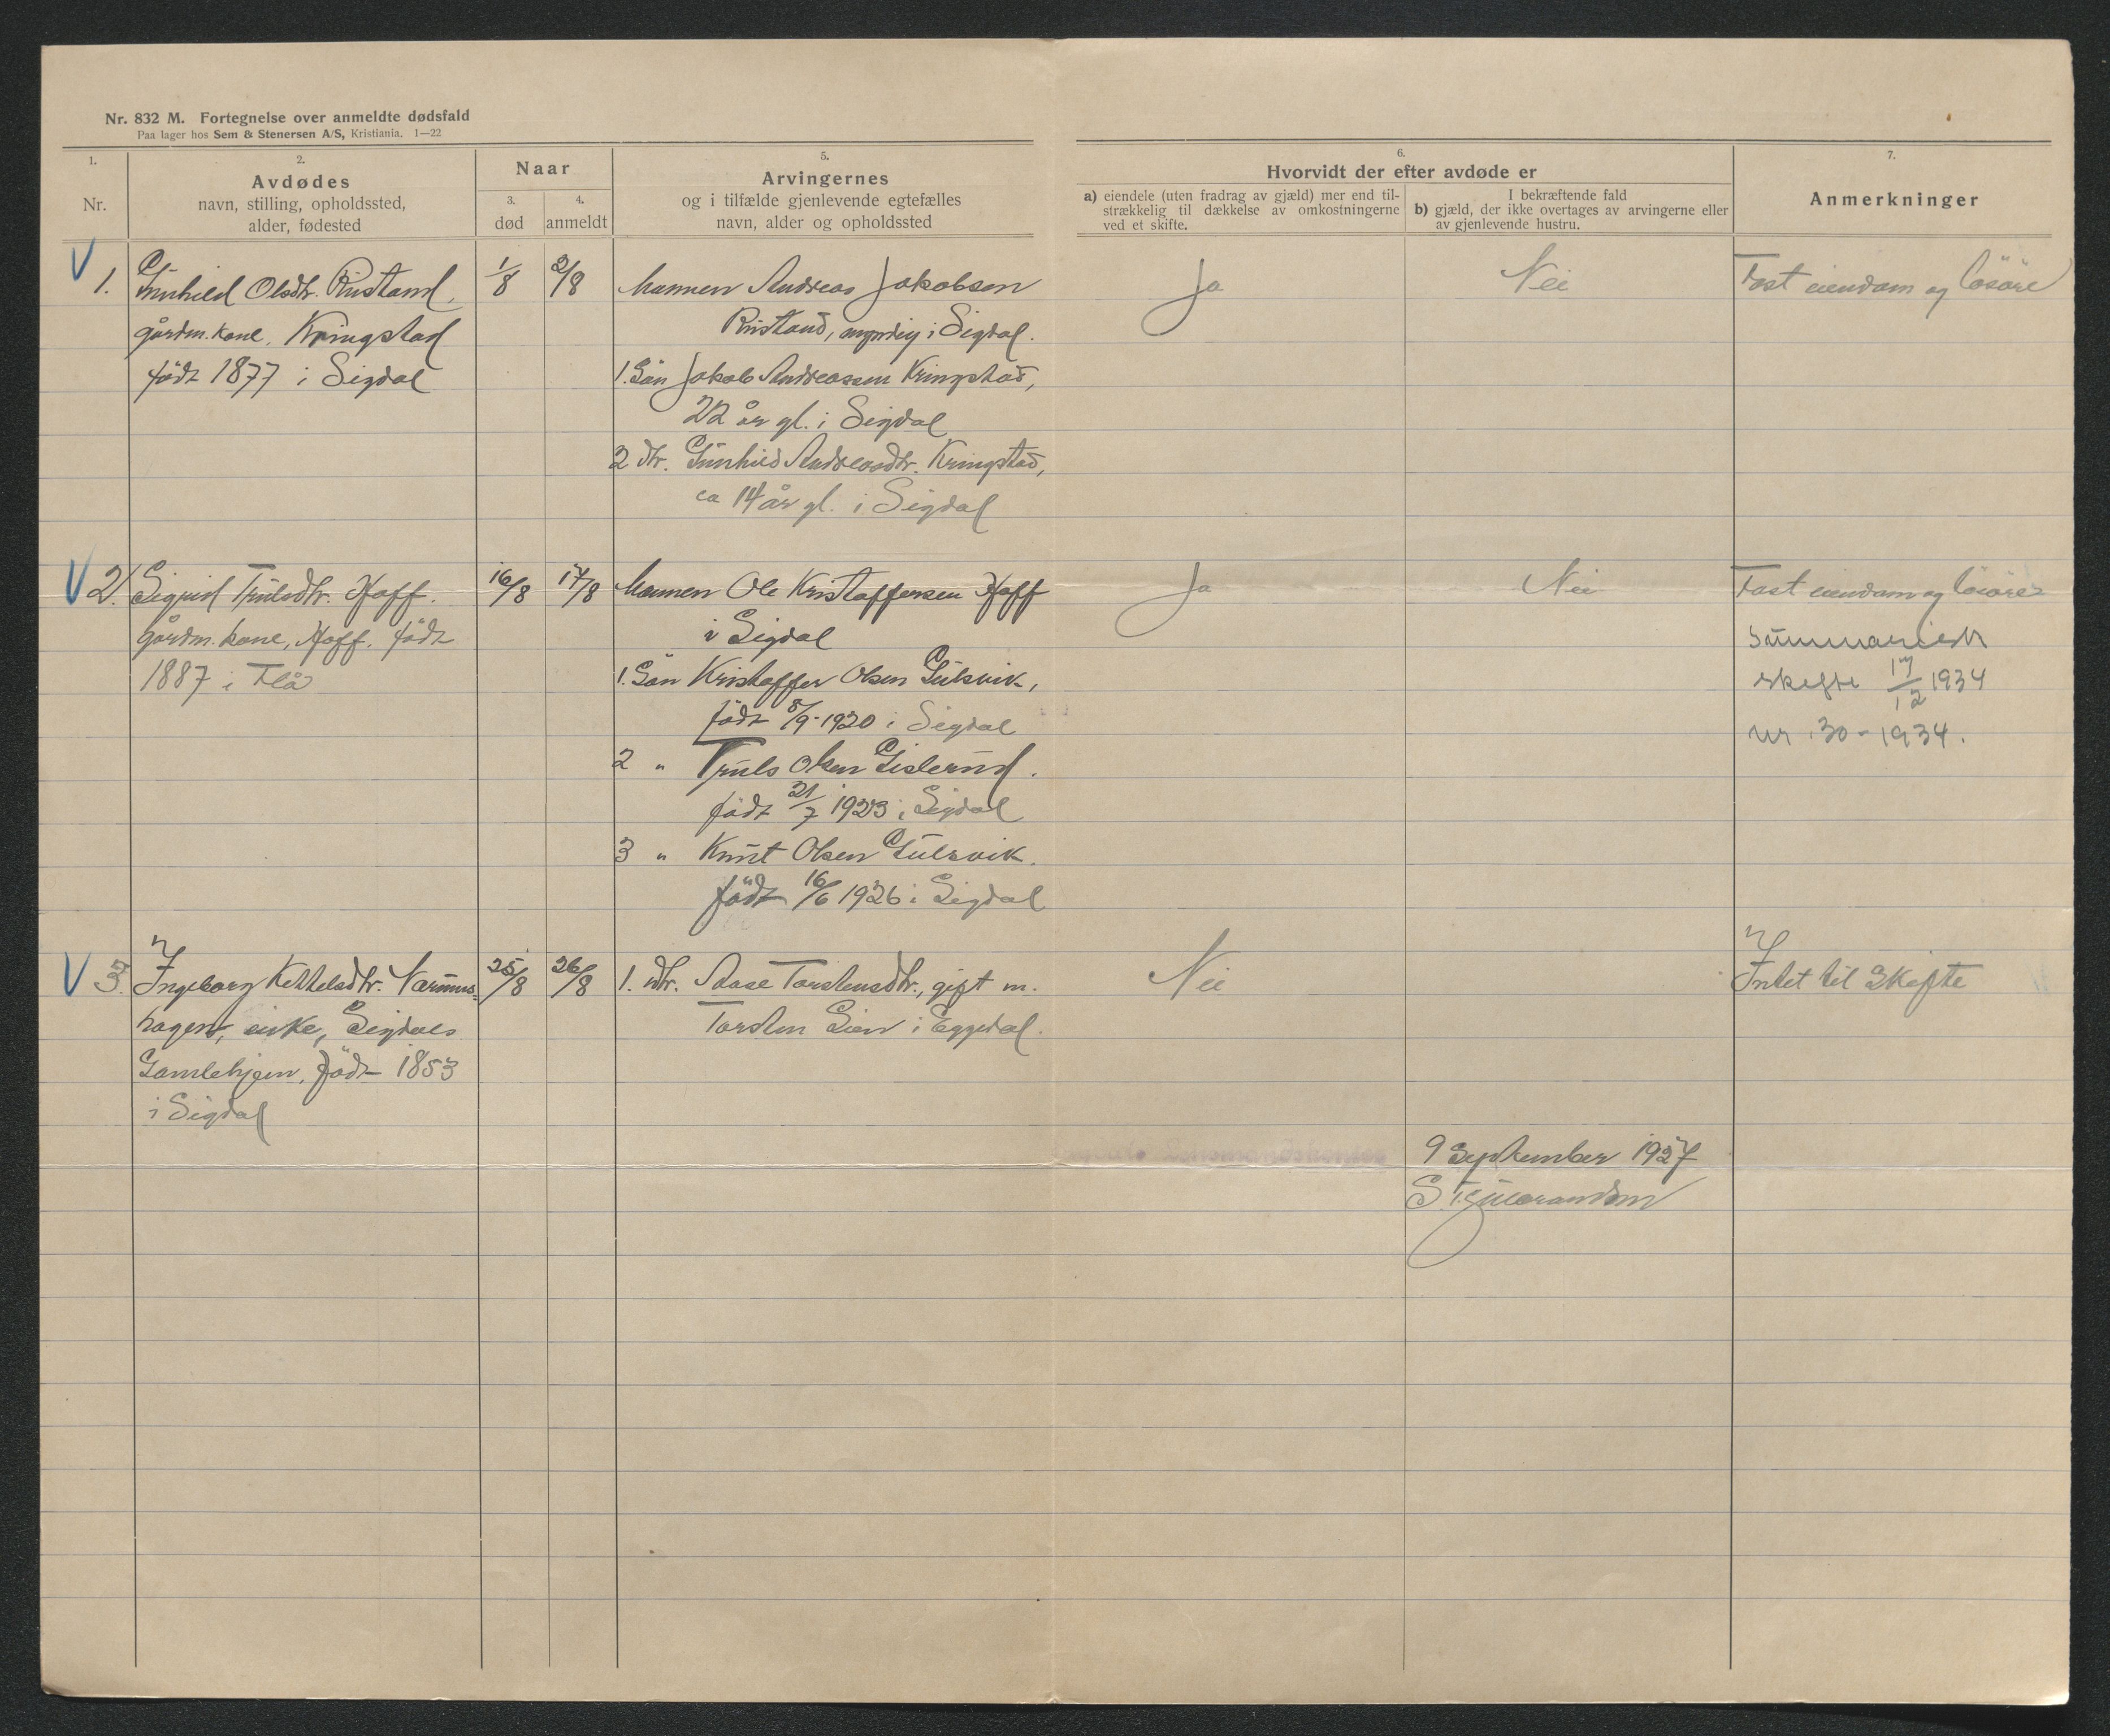 Nr. 832 M. Fortegnelse over anmeldte dødsfald
Paa lager hos Sem & Stenersen A/S, Kristiania. 1—22
1.
Nr.
2.
Avdødes
navn, stilling, opholdssted,
alder, fødested
Naar
3.
død
4.
anmeldt
5.
Arvingernes
og i tilfælde gjenlevende egtefælles
navn, alder og opholdssted
6.
Hvorvidt der efter avdøde er
a) eiendele (uten fradrag av gjæld) mer end til-
strækkelig til dækkelse av omkostningerne
ved et skifte.
I bekræftende fald
b) gjæld, der ikke overtages av arvingerne eller
av gjenlevende hustru.
7.
Anmerkninger
V 1.
Gunhild Olsdtr. Rustand,
gårdm.kone, Kringstad
född 1877 i Sigdal
1/8
2/8
Mannen Andreas Jakobsen
Rustand, i Sigdal.
1. Sön Jakob Andreassen Kringstad,
22 år gl. i Sigdal
2 dtr. Gunhild Andreasdtr. Kringstad,
ca 14 år gl. i Sigdal
Ja
Nei
Fast eiendom og lösöre
V 2.
Sigrid Trulsdtr. Hoff.
gårdm.kone, Hoff, född
1887 i Flå
16/8
17/8
Mannen Ole Kristoffersen Hoff
i Sigdal
1. Sön Kristoffer Olsen Gulsvik,
född 8/9-1920 i Sigdal
2 " Truls Olsen Gislerud.
född 21/7 1923 i Sigdal
3 " Knut Olsen Gulsvik.
född 16/6 1926 i Sigdal
Ja
Nei
Fast eiendom og lösöre
Summarisk
skifte 17/12 1934
nr. 30-1934.
V 3.
Ingeborg Kittelsdtr.
hagen, enke, Sigdals
Gamlehjem, född 1853
i Sigdal
25/8
26/8
1. dtr. Aase Torstensdtr., gift m.
Torsten Lien i Eggedal.
Nei
Intet til Skifte
9 September 1927